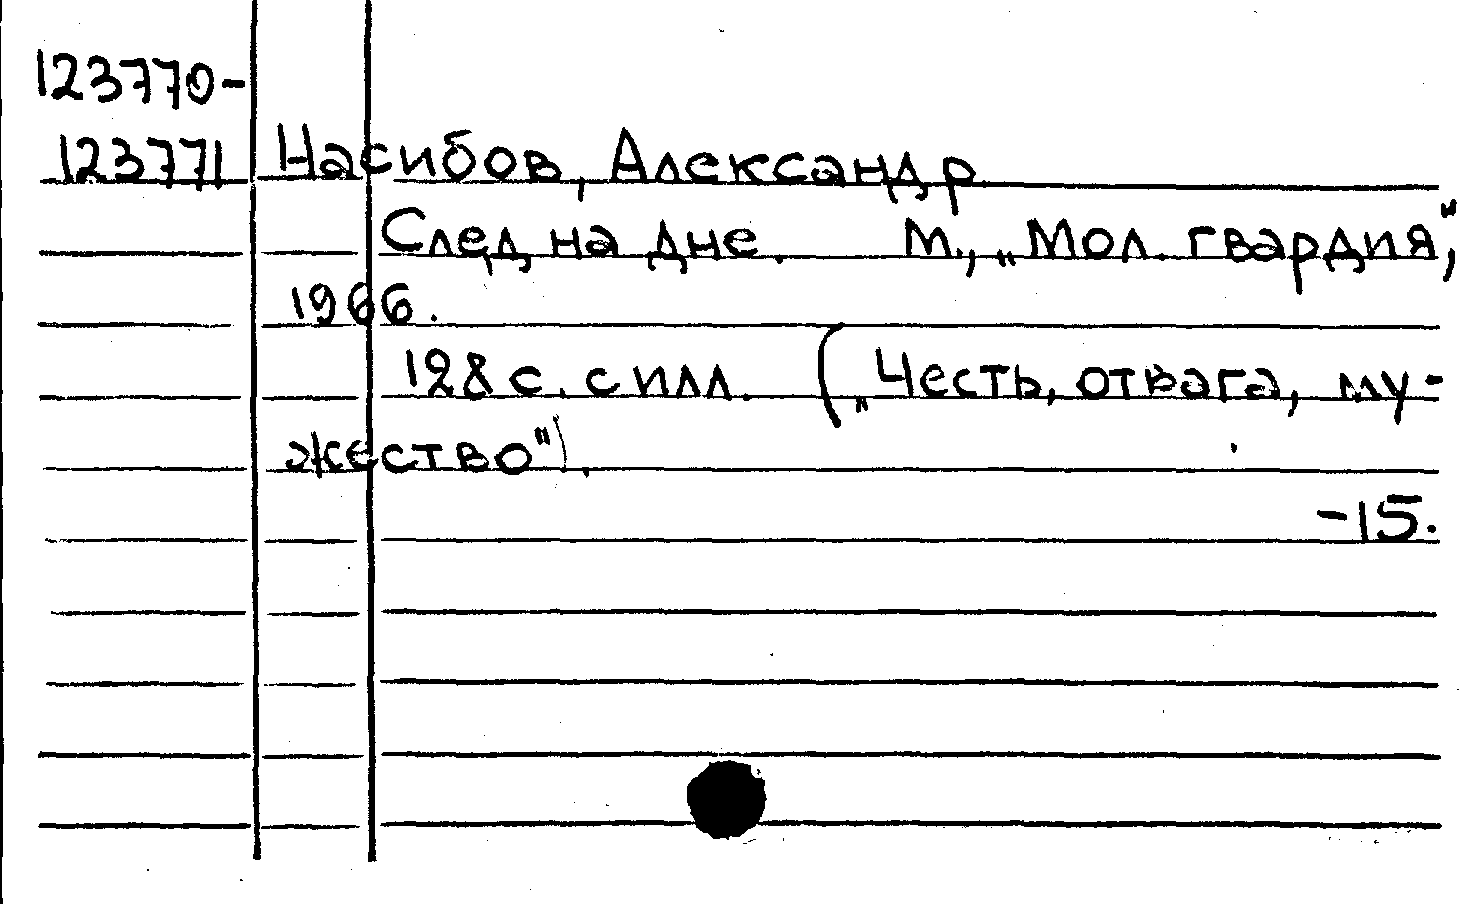 123770-
123771 Насибов, Александр
След на дне. М., „Мол. гвардия",
1966.
128 с. с илл. („Честь, отвага, му-
жество").
-15.